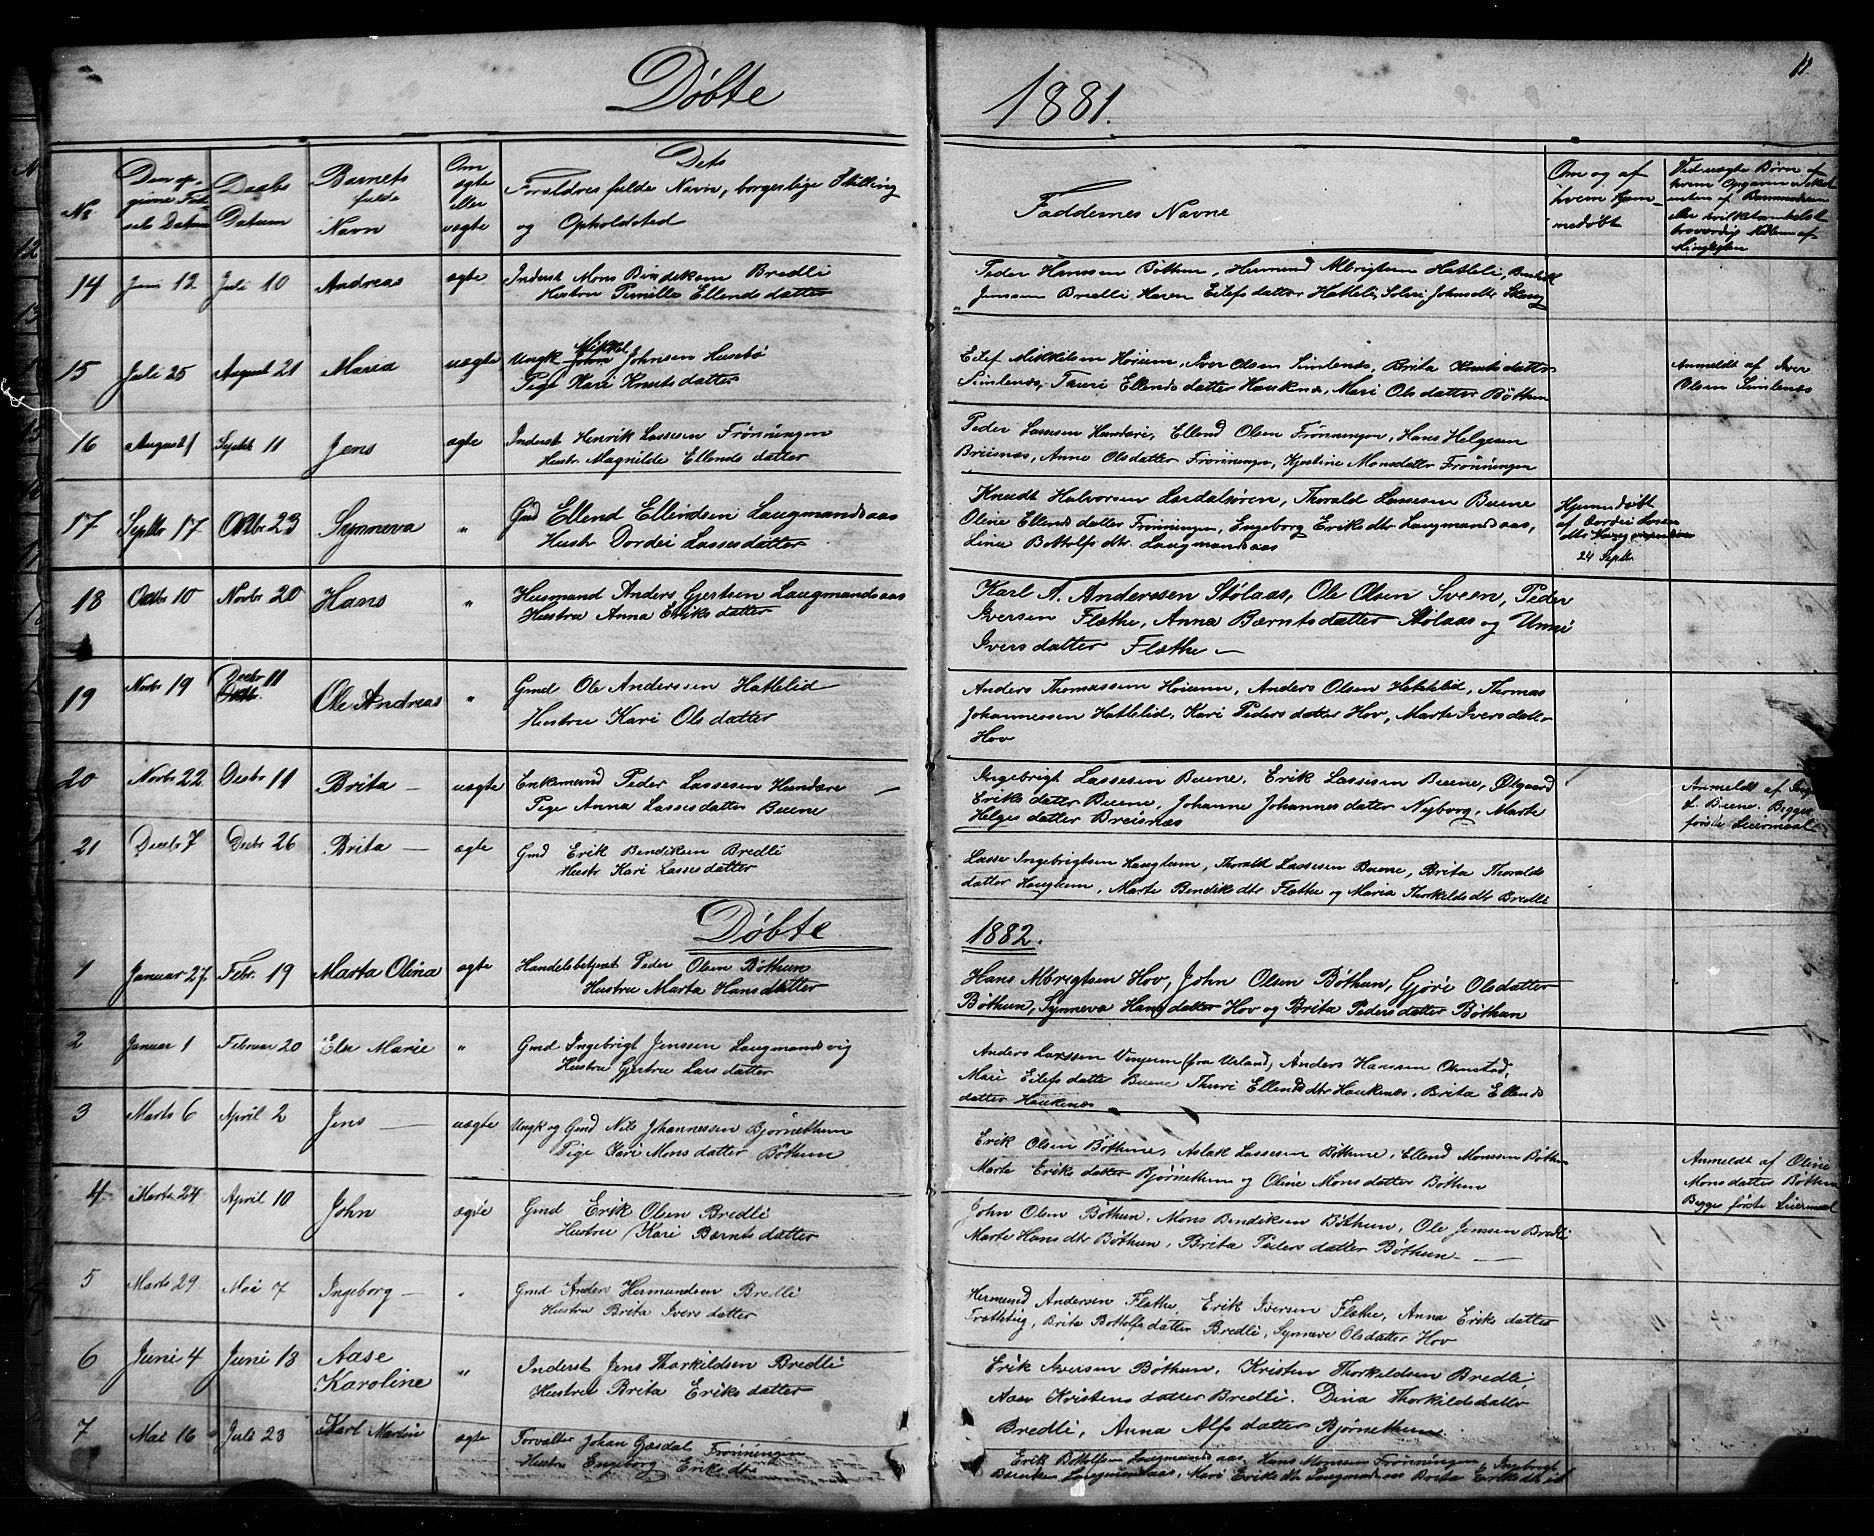 Døbte
1881.
No
Døbte
Daabs Datum
Barnets fulde Navn
Om ægte eller uægte
Dets Forældres fulde Navn, borgerlige Stilling og Opholdsted
Faddernes Navne
Om og af hvem hjemmedøbt
14 Juni 12 Juli 10 Andreas ægte Inderst Mons Bendiksen Bredli
Hustru Pernille Ellendsdatter
Peder Hanssen Bøthun, Hermund Hatleli,
Jenssen Bredli, Hatleli, Johnsdtr
15 Juli 25 August 21 Maria uægte Ungk Mikkel Johnsen Husebø
Pige Kari Knutsdatter
Eilef Mikkelsen Høium, Iver Olsen Simlenæs, Brita Knutsdatter
Simlenæs, Tauri Ellendsdatter Haukenæs, Mari Olsdatter Bøthun
Anmeldt af Iver
Olsen Simlenæs
16 August 1 Septbr 11 Jens ægte Inderst Henrik Lassesen Frønningen
Hustr Magnilde Ellendsdatter
Peder Lassesen Hundere, Ellend Olsen Frønningen, Hans Helgesen
Breisnæs, Anne Olsdatter Frønningen, Kjestine Monsdatter Frønningen
17 Septbr 17 Octbr 23 Synneva " Gmd Ellend Ellendsen Laugmandsaas
Hustr Dordei Lassesdatter
Knudt Halvorsen Lærdalsøren, Thorald Lassesen Buene
Oline Ellendsdatter Frønningen, Engeborg Eriksdtr Laugmandsaas,
Lina Bottolfsdtr. Laugmandsaas
Hjemmedøbt
af Dordei
24 Septbr
18 Octbr 10 Novbr 20 Hans " Husmand Anders Gjertsen Laugmandsaas
Hustru Anna Eriksdatter
Karl A. Anderssen Stølaas, Ole Olsen Sveen, Peder
Iversen Flæthe, Anna Bærntsdatter Stølaas og Unni
Iversdatter Flæthe —
19 Novbr 19 Decbr 11 Ole Andreas " Gmd Ole Anderssen Hattelid
Hustru Kari Olsdatter
Anders Thomassen Høium, Anders Olsen Hattelid, Thomas
Johannessen Hattelid, Kari Pedersdatter Hov, Marte Iversdatter
Hov
20 Novbr 22 Decbr 11 Brita — uægte Enkemand Peder Lassesen Hundere —
Pige Anna Lassesdatter Buene
Ingebrigt Lassesen Buene, Erik Lassesen Buene, Olgaard
Eriksdatter Buene, Johanne Johannesdatter Nyborg, Marte
Helgesdatter Breisnæs
Anmeldt af
L. Buene. Begges
første Leiermaal
21 Decbr 7 Decbr 26 Brita — ægte Gmd Erik Bendiksen Bredli
Hustr Kari Lassesdatter
Lasse Ingebrigtsen Haugtun, Thorald Lassesen Buene, Brita Thoralds
datter Haugtun, Marte Bendiksdtr Flæthe og Maria Thorkildsdtr Bredli
Døbte
1882.
1 Januar 27. Febr. 19 Marta Olina ægte Handelsbetjent Peder Olsen Bøthun
Hustru Marta Hansdatter
Hans Albrigtsen Hov, John Olsen Bøthun, Gjøri Olsdatter
Bøthun, Synneva Hansdatter Hov og Brita Pedersdatter Bøthun
2 Januar 1 Februar 20 Else Marie " Gmd Ingebrigt Jenssen Laugmandsvig
Hustru Gjertru Larsdatter
Anders Larssen Vinjum (fra Urland), Anders Hanssen Ornstad,
Mari Eilefsdatte Buene Thuri Ellendsdtr Haukenæs, Brita Ellends
datter Haukenæs
3 Marts 6 April 2 Jens — uægte Ungk og Gmd Nils Johannessen Bjørnethun
Pige Kari Monsdatter Bøthun
Erik Olsen Bøthun, Aslak Lassesen Bøthun, Ellend Monssen Bøthun
Marte Eriksdatter Bjørnethun og Oline Monsdatter Bøthun
Anmeldt af Oline
Monsdatter Bøthun
Begges første Leiermaal
4 Marts 24 April 10 John ægte Gmd Erik Olsen Bredli
Hustru Kari Bærntsdatter
John Olsen Bøthun, Mons Bendiksen Bøthun, Ole Jenssen Bredli
Marte Hansdtr Bøthun, Brita Pedersdatter Bøthun —
5 Marts 29 Mai 7 Ingeborg — " Gmd Anders Hermundsen Bredli
Hustru Brita Iversdatter
Hermund Andersen Flæthe, Erik Iversen Flæthe, Anna Eriksdatter
Brita Bottolfsdatter Bredli, Synneve Olsdatter Hov
6 Juni 4 Juni 18 Aase
Karoline " Inderst Jens Thorkildsen Bredli
Hustru Brita Eriksdatter
Erik Iversen Bøthun, Kristen Thorkildsen Bredli,
Aase Kristensdatter Bredli. Dina Thorkildsdatter
Bredli, Anna Alfsdatter Bjørnethun.
7 Mai 16 Juli 23 Karl Martin ægte Forvalter Johan Gjesdal Frønningen
Hustru Engeborg Eriksdtr
Erik Bottolfsen Laugmandsaas, Hans Monssen Frønningen, Ingebrigt
Laugmandsaas, Mari Eriksdtr Laugmandsaas Brita Eriksdtr